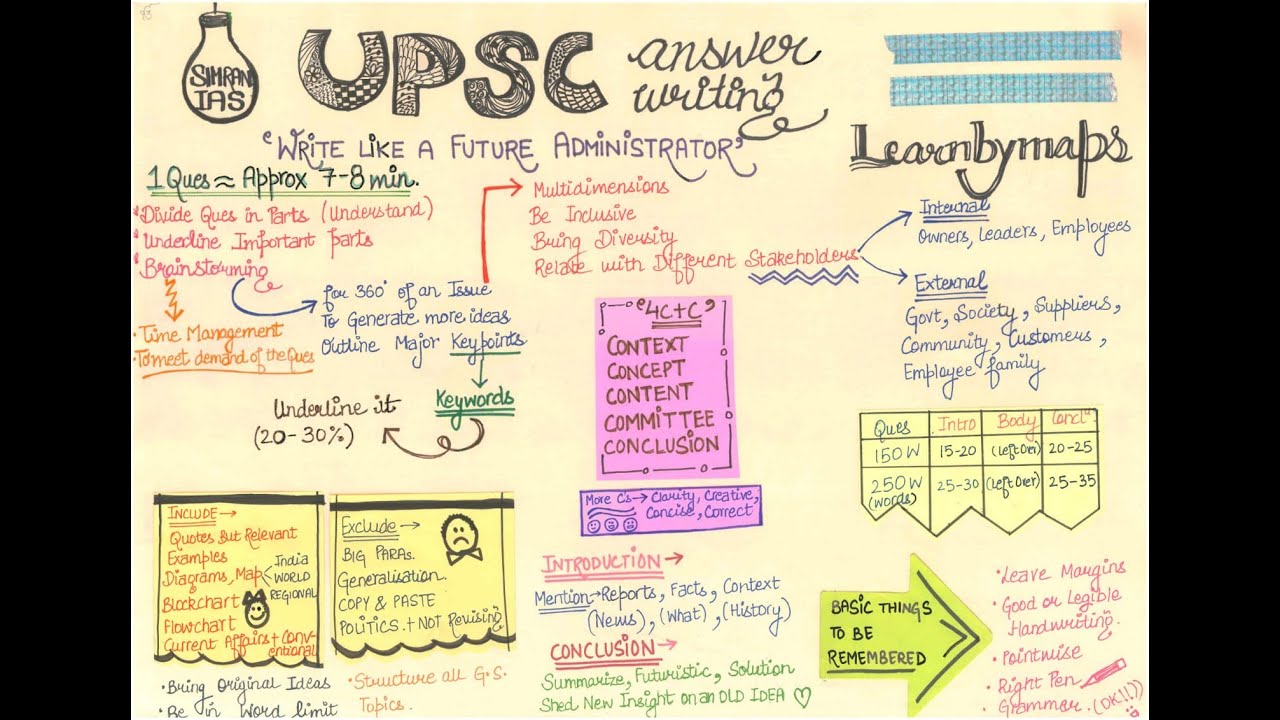 SIMRAN
IAS
UPSC answer
writing
Learnbymaps
'WRITE LIKE A FUTURE ADMINISTRATOR'
1 Ques ≈ Approx 7-8 min.
Divide Ques in Parts (Understand)
Underline Important parts
Brainstorming
• Time Management
• To meet demand of the Ques
for 360° of an Issue
To Generate more ideas
Outline Major Keypoints
Keywords
Underline it
(20-30%)
Multidimensions
Be Inclusive
Bring Diversity
Relate with Different Stakeholders
Internal
Owners, Leaders, Employees
External
Govt, Society, Suppliers,
Community, Customers,
Employee family
'4C+C'
CONTEXT
CONCEPT
CONTENT
COMMITTEE
CONCLUSION
More C's → Clarity, Creative,
Concise, Correct
Ques Intro Body Conclⁿ.
150 W 15-20 (Left Over) 20-25
250 W (words) 25-30 (Left Over) 25-35
INCLUDE →
Quotes But Relevant
Examples
Diagrams, Map India WORLD REGIONAL
Blockchart
Flowchart
Current Affairs + Conv-
entional
• Bring Original Ideas
• Be in word limit
Exclude →
BIG PARAs.
Generalisation.
COPY & PASTE
POLITICS. + NOT Revising
• Structure all G.S.
Topics.
INTRODUCTION →
Mention → Reports, Facts, Context
(News), (What), (History)
CONCLUSION →
Summarize, Futuristic, Solution
Shed New Insight on an OLD IDEA ♡
BASIC THINGS
TO BE
REMEMBERED
• Leave Margins
• Good or Legible
Handwriting.
• Pointwise
• Right Pen
• Grammar. (OK!!)